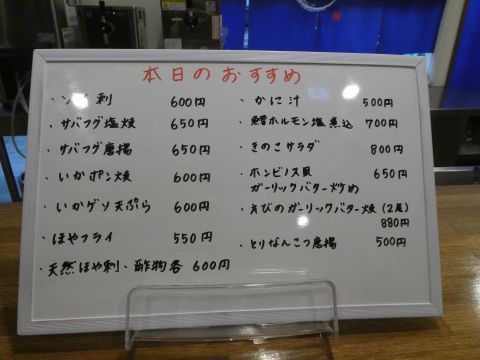 本日のおすすめ
刺 600円
・サバフグ塩焼 650円
・サバフグ唐揚 650円
・いかポン焼 600円
・いかゲソ天ぷら 600円
・ほやフライ 550円
・天然ほや刺・酢物各 600円
・かに汁 500円
・鱈ホルモン塩煮込 700円
・きのこサラダ 800円
・ホンビノス貝 650円
ガーリックバター炒め
・えびのガーリックバター焼(2尾)
880円
・とりなんこつ唐揚 500円